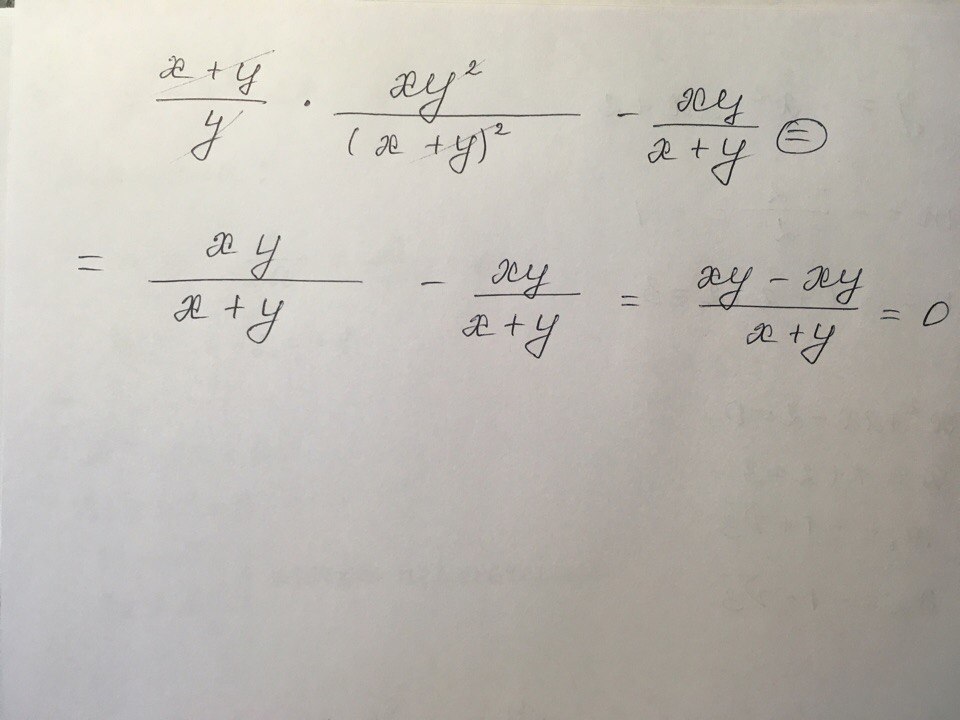 (x + y)/y · xy²/(x + y)² − xy/(x + y) =
= xy/(x + y) − xy/(x + y) = (xy − xy)/(x + y) = 0